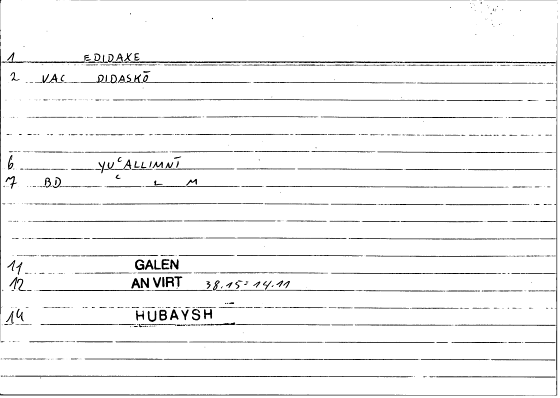 1 EDIDAXE
2 VAC DIDASKŌ
6 YUᶜALLIMNĪ
7 BD ᶜ L M
11 GALEN
12 AN VIRT 38.15=14.11
14 HUBAYSH